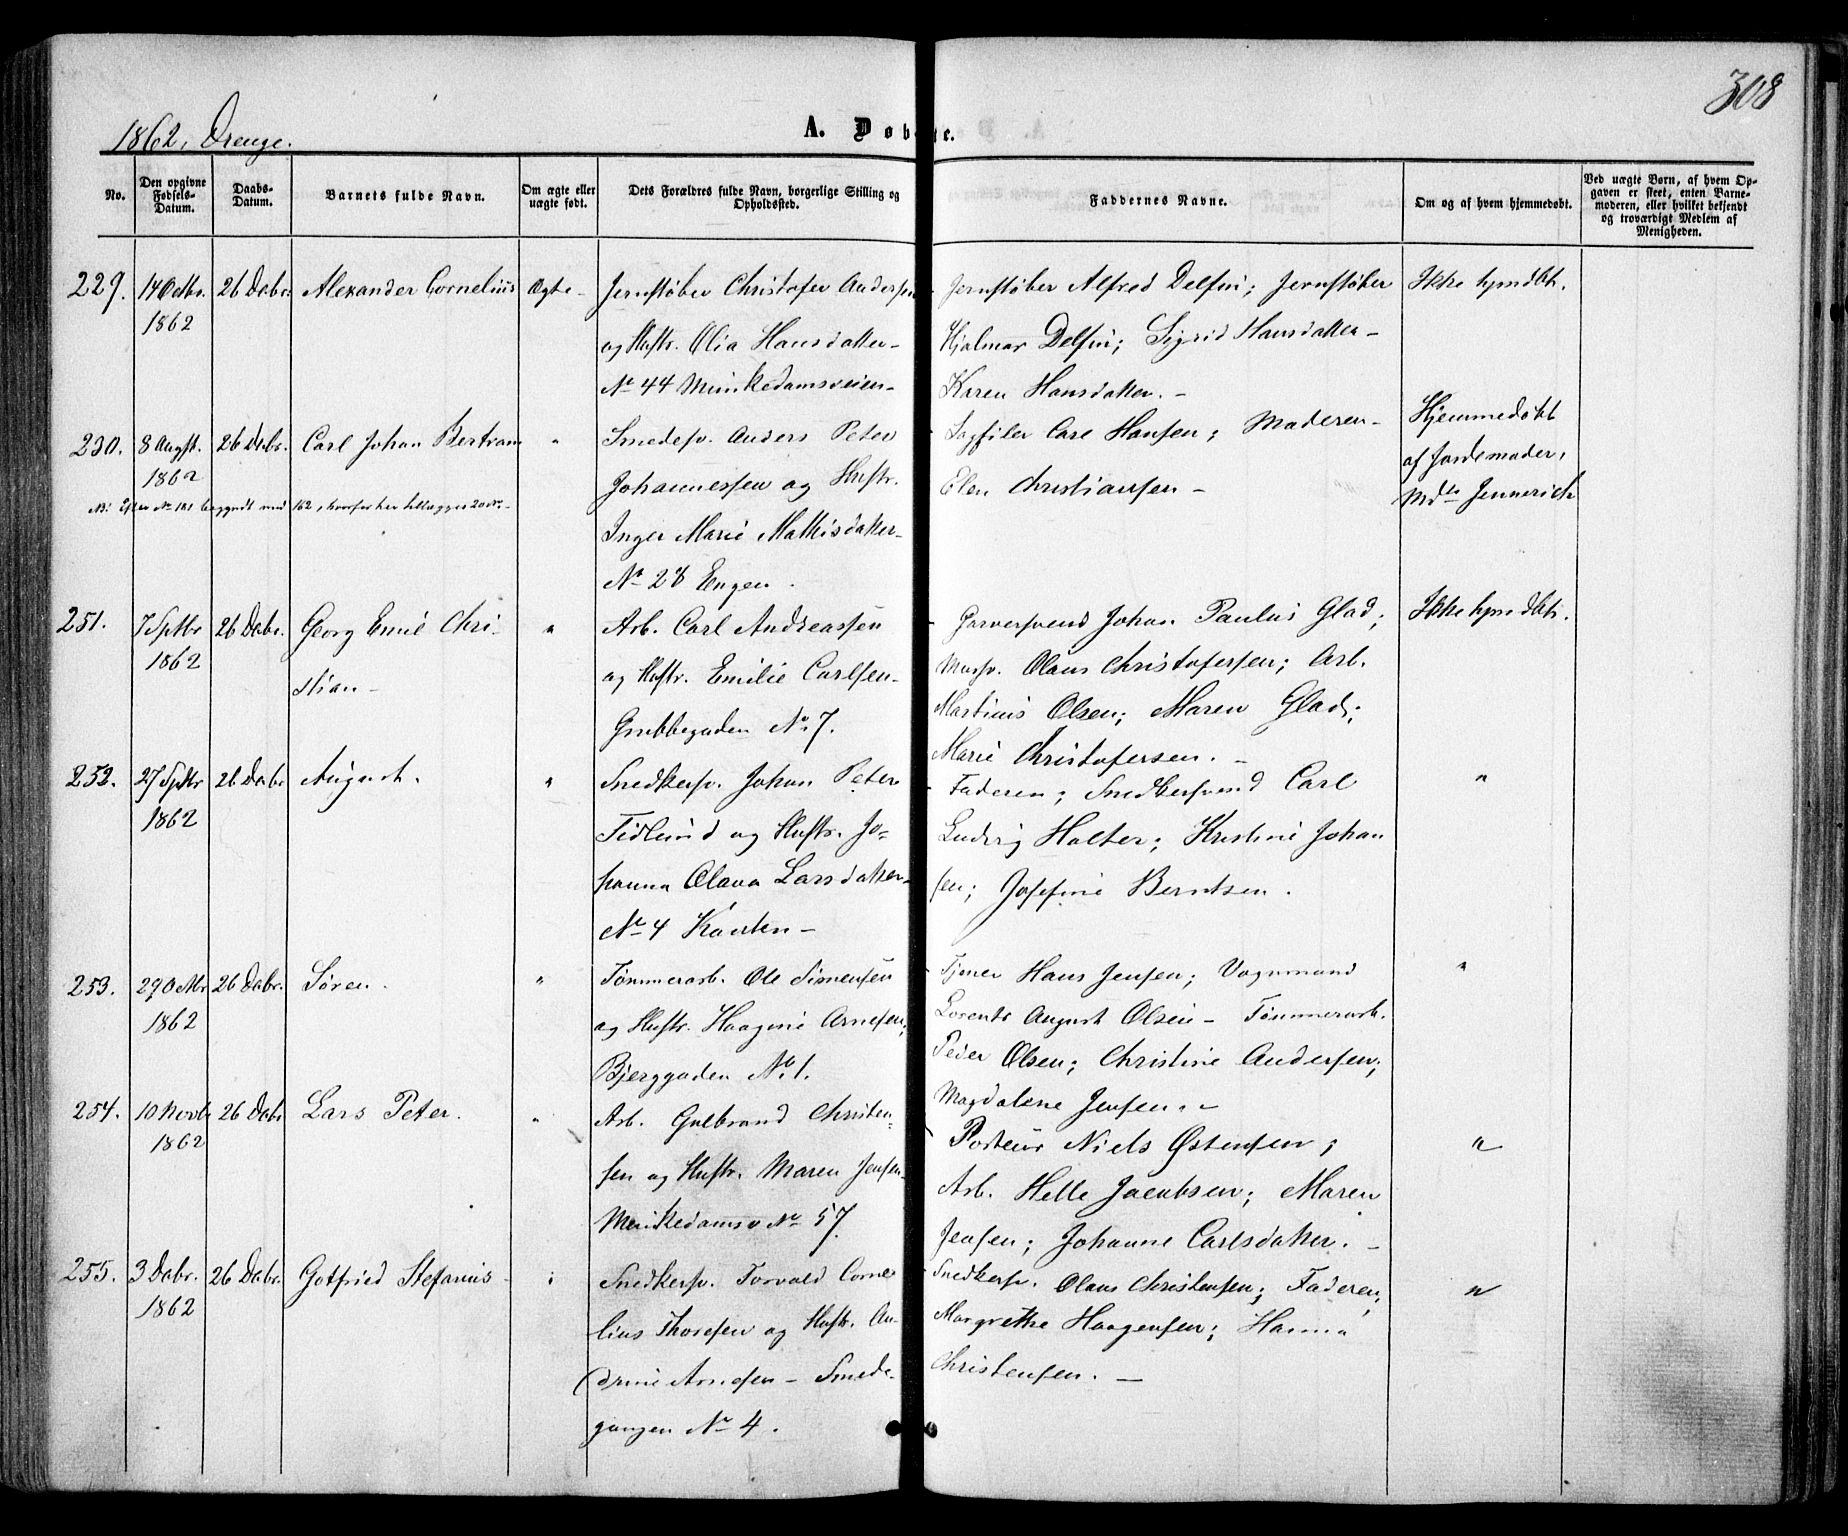 308
1862, Drenge.
A. Døbte.
No.
Den opgivne Fødsels-Datum.
Daabs-Datum.
Barnets fulde Navn.
Om ægte eller uægte født.
Dets Forældres fulde Navn, borgerlige Stilling og Opholdssted.
Faddernes Navne.
Om og af hvem hjemmedøbt.
Ved uægte Børn, af hvem Opgaven er skeet, enten Barnemoderen, eller hvilket bekjendt og troværdigt Medlem af Menigheden.
229. 14 Octbr. 1862
26 Dcbr.
Alexander Cornelius
Ægte
Jernstøber Christofer Andersen
og Hustr. Olia Hansdatter
No 44 Munkedamsveien
Jernstøber Alfred Delfin; Jernstøber
Hjalmar Delfin; Sigrid Hansdatter
Karen Hansdatter.
Ikke hjmdbt.
230. 8 Augst. 1862
26 Dcbr.
Carl Johan Bertram
"
Smedesv. Anders Peter
Johannessen og Hustr.
Inger Marie Mathisdatter
No 28 Engen.
Sagfiler Carl Hansen; Moderen
Elen Christiansen
Hjemmedøbt
af Jordemoder,
Mdm Jennerich
NB: Efter No 181 begyndt med 162, hvorfor her tillægges 20 No.
251. 7 Septbr 1862
26 Dcbr.
Georg Emil Chri-
stian
"
Arb. Carl Andreassen
og Hustr. Emilie Carlsen
Grubbegaden No. 7.
Garversvend Johan Paulus Glad;
Mursv. Olaus Christofersen; Arb.
Martinus Olsen; Maren Glad;
Marie Christofersen.
Ikke hjmdbt.
252. 27 Septbr 1862
26 Dcbr
August.
"
Snedkersv. Johan Peter
Tidlund og Hustr. Jo-
hanna Olava Larsdatter
No 4 Kanten
Faderen; Snedkersvend Carl
Ludvig Holter; Kristine Johan
sen; Josefine Berntsen.
"
253. 29 Octbr 1862
26 Dcbr.
Søren.
"
Tømmerarb. Ole Simensen
og Hustr. Haagine Arnesen,
Bjerggaden No. 1.
Tjener Hans Jensen; Vognmand
Lorents August Olsen - Tømmerarb.
Peder Olsen; Christine Andersen;
Magdalene Jensen.
"
254. 10 Novb. 1862
26 Dcbr
Lars Peter.
"
Arb. Gulbrand Christen-
sen og Hustr. Maren Jensen
Munkedamsv No 57.
Porteur Niels Østensen;
Arb. Helle Jacobsen; Maren
Jensen; Johanne Carlsdatter.
"
255. 3 Dcbr. 1862
26 Dcbr.
Gotfried Stefanius
"
Snedkersv. Torvald Corne
lius Thoresen og Hustr. An-
drine Arnesen - Smede-
gangen No 4.
Snedkersv. Olaus Christensen; Faderen;
Margrethe Haagensen; Hanna
Christensen.
"